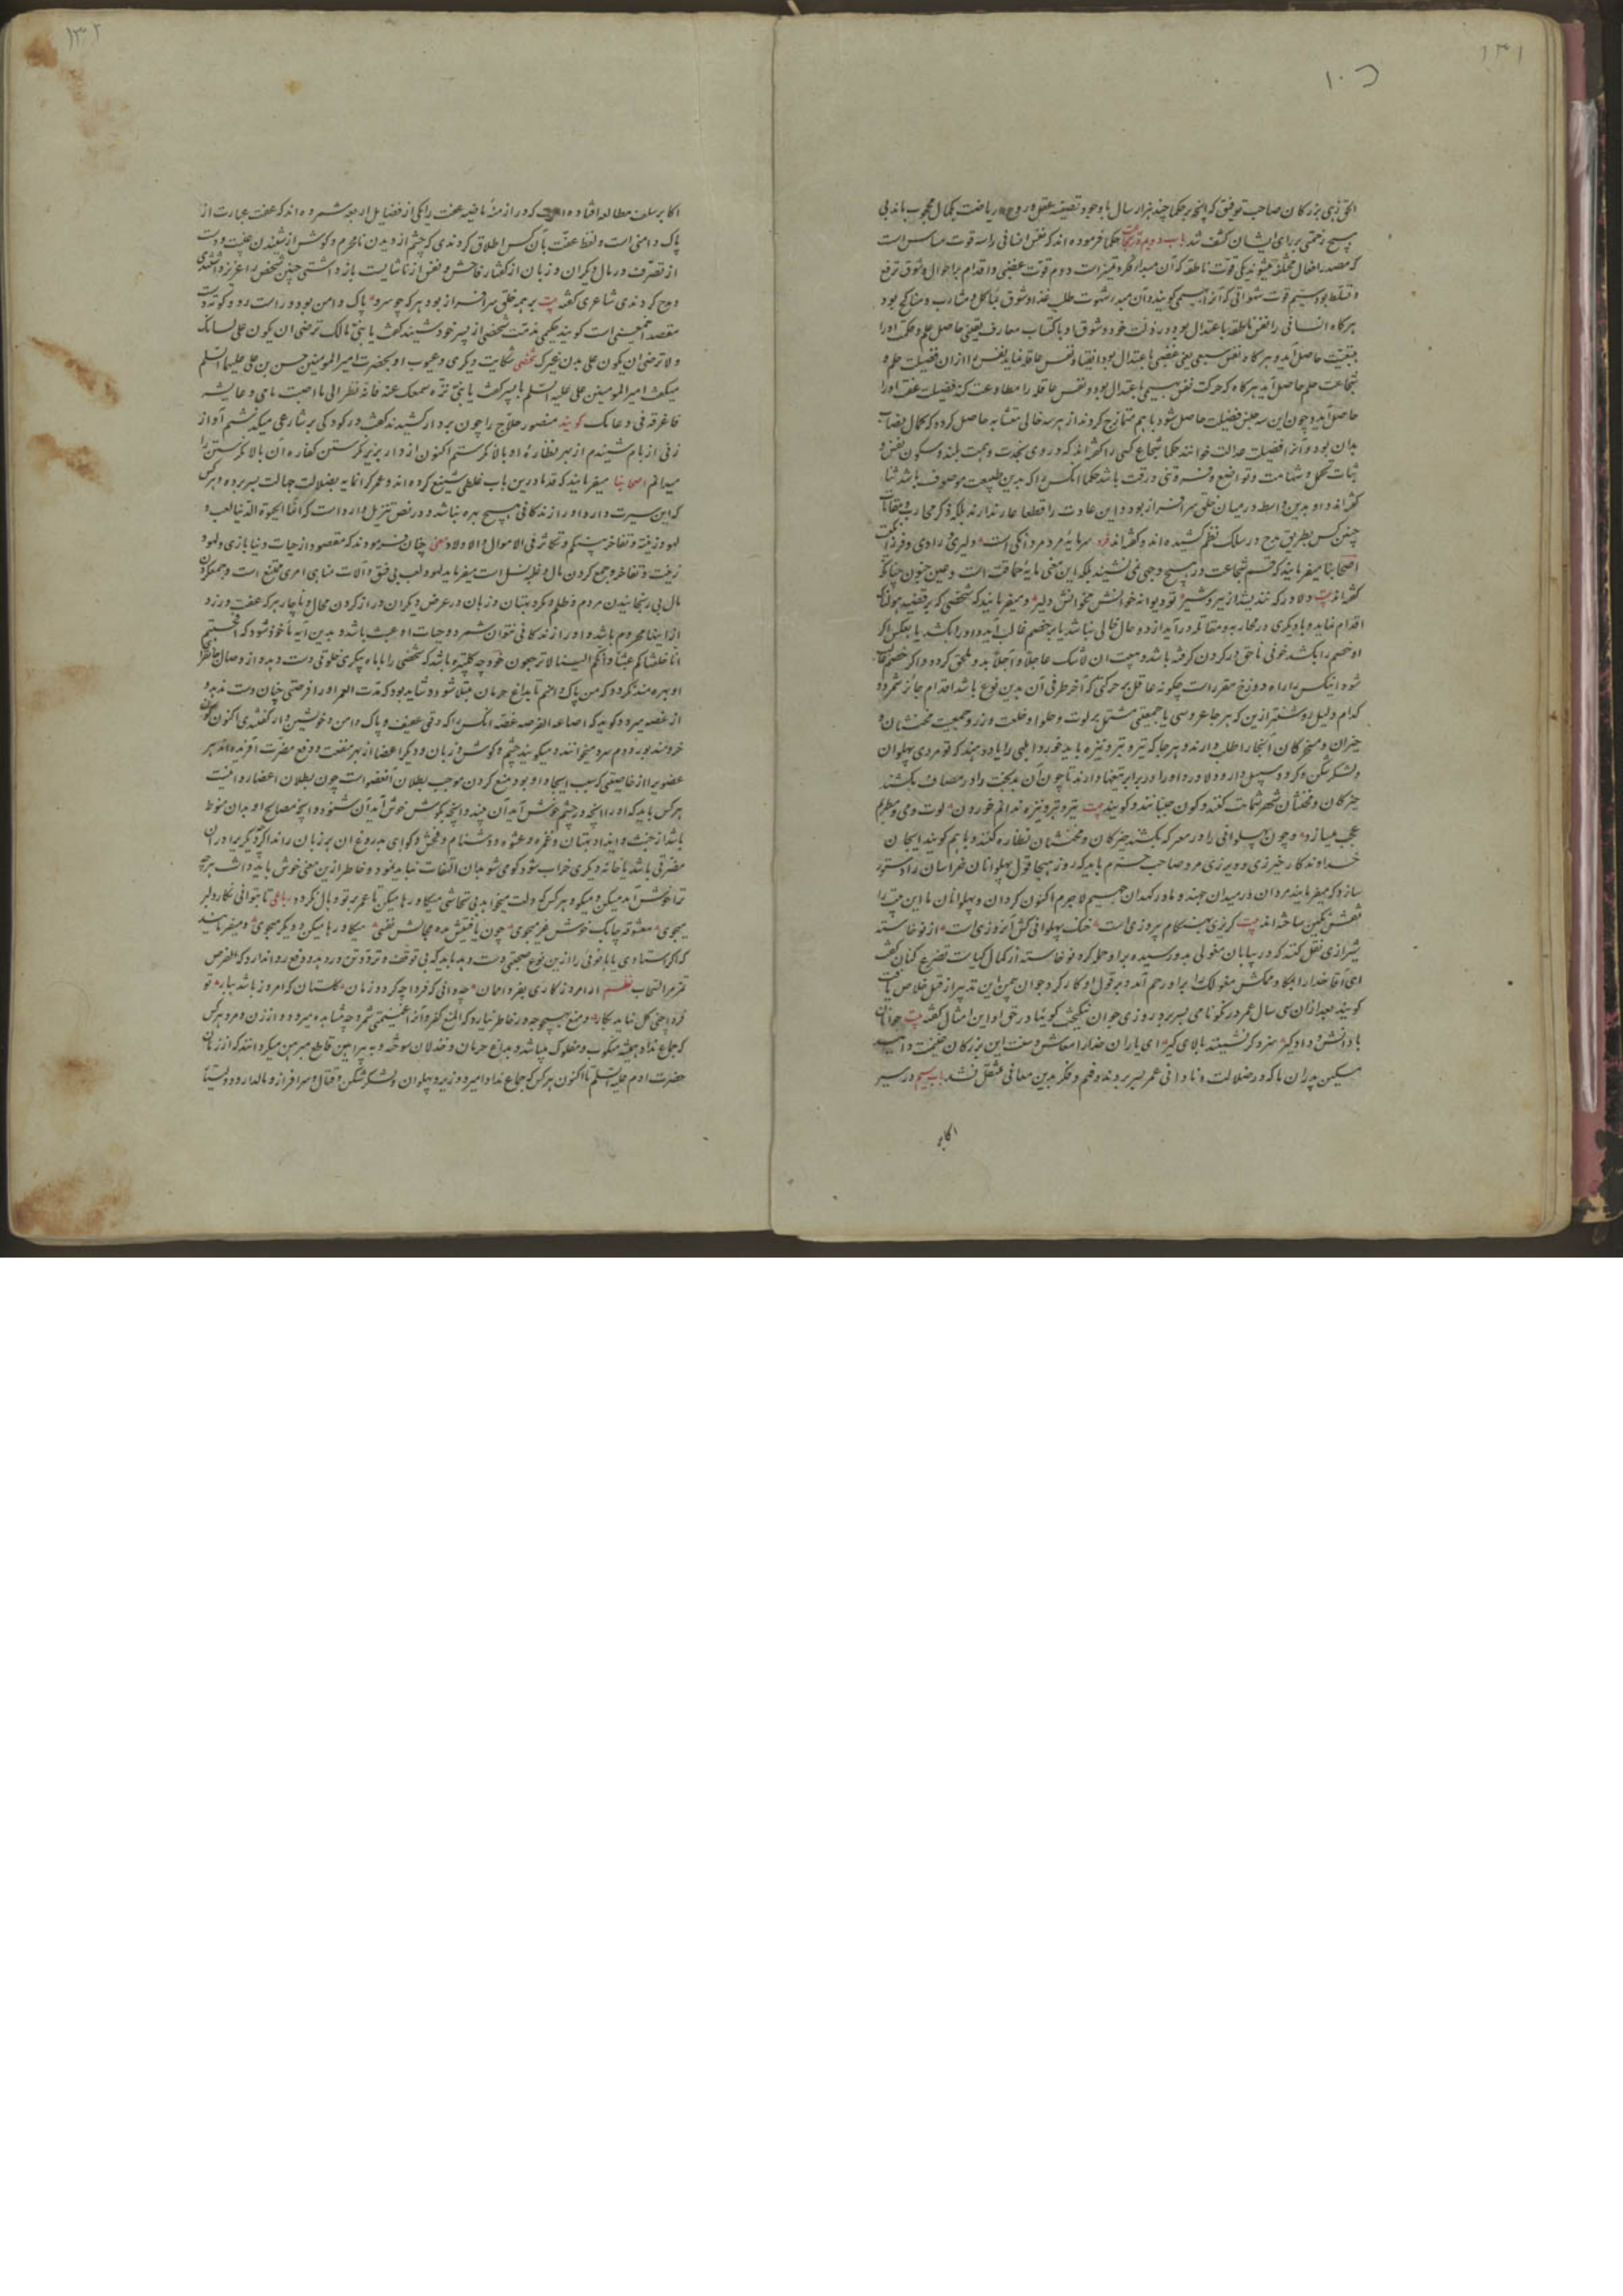 ۱۳۱
الحق زهی بزرگان صاحب توفیق که آنچه بر حکما چند هزار سال با وجود تصفیه عقل و روح و ریاضت بکمال محجوب ماند بی
هیچ زحمتی بر رای ایشان کشف شد باب دوم در شجاعت حکما فرموده‌اند که نفس انسانی را سه قوت متباین است
که مصدر افعال مختلفه میشوند یکی قوت ناطقه که آن مبداء فکر و تمیز است دوم قوت غضبی و اقدام بر اهوال و شوق ترفع
و تسلط بود سیم قوت شهوانی که آنرا بهیمی گویند و آن مبدء شهوت طلب غذا و شوق بمآکل و مشارب و مناکح بود
هرگاه انسانی را نفس ناطقه باعتدال بود در ذات خود و شوق او باکتساب معارف یقینی حاصل علم و حکمت او را
بتبعیت حاصل آید و هرگاه نفس سبعی یعنی غضبی باعتدال بود انقیاد نفس عاقله نماید نفس را از آن فضیلت حلم و
شجاعت حاصل آید هرگاه که حرکت نفس بهیمی باعتدال بود و نفس عاقله را مطاوعت کند فضیلت عفت او را
حاصل آید و چون این سه جنس فضیلت حاصل شود با هم متمازج گردند از هر سه حالی متشابه حاصل گردد که کمال فضایل
بدان بود و آنرا فضیلت عدالت خوانند حکما شجاع کسی را گفته‌اند که در وی نجدت و همت بلند و سکون نفس و
ثبات تحمل و شهامت و تواضع و فروتنی و رقت باشد حکما آنکس را که بدین طبیعت موصوف باشد ثنا
گفته‌اند و او بدین واسطه در میان خلق سرافراز بود و این عادت را قطعا عار ندارند بلکه ذکر محاربات و مقاتلات
چنین کس بطریق مدح در سلک نظم کشیده‌اند و گفته‌اند فرد سرمایه مرد مردانگی است دلیری و رادی و فرزانگیست
اصحابنا میفرمایند که قسم شجاعت در هیچ وجهی نمی‌نشیند بلکه این معنی مایه حماقت است و عین جنون چنانکه
گفته‌اند بیت دلاور که نندیشد از ببر و شیر تو دیوانه خوانش مخوانش دلیر و میفرمایند که شخصی که بر قضیه هولناک
اقدام نماید و با دیگری در محاربه و مقاتله در آید از دو حال خالی نباشد یا بر خصم غالب آید و او را بکشد یا بعکس اگر
او خصم را بکشد خونی ناحق در گردن گرفته باشد و تبعت آن لاشک عاجلا و آجلا بدو ملحق گردد و اگر خصم غالب
شود آنکس را راه دوزخ مقرر است چگونه عاقل بر حرکتی که آخر طرفی آن بدین نوع باشد اقدام جائز شمرد و
کدام دلیل روشنتر ازین که هر جا عروسی یا جمعیتی مشتمل بر لوت و حلوا و خلعت و زر و جمعیت مخنثان و
حیزان و مسخرگان آنجا را طلب دارند و هر جا که تیر و تبر و نیزه باید خورد ابلهی را یاد دهند که تو مردی پهلوان
و لشکر شکن و گرد و سپهبل‌دار و دلاور و او را در برابر تیغها دارند تا چون آن بدبخت را در مصاف بکشند
حیزکان و مخنثان شهر شماتت کنند و کون جنبانند و گویند بیت تیر و تبر و نیزه ندانم خوردن لوت و می و مطربم
عجب میسازد و چون پهلوانی را در معرکه بکشند حیزکان و مخنثان نظاره کنند و با هم گویند ای جان
خداوندکار حیز زی و دیر زی مرد صاحب حزم باید که روز هیجا قول پهلوانان خراسان را دستور
سازد که میفرمایند مردان در میدان جهند و ما در کهدان جهیم لاجرم اکنون گردان و پهلوانان ما این بیت را
نقش نگین ساخته‌اند بیت گریز بهنگام پیروزی است خنک پهلوانی کش آن روزی است از نوخاسته
شیرازی نقل کنند که در بیابان مغولی بدو رسیده بر او حمله کرد نوخاسته از کمال کیاست تضرع کنان گفت
ای آقا خدا را بگا و مکش مغولک را بر او رحم آمد و بر قول او کار کرد جوان بیمن این تدبیر از قتل خلاص یافت
گویند بعد از آن سی سال عمر در نیکونامی بسر برد زهی جوان نیکبخت گوئیا در حق او این امثال گفته بیت جوانان
با دانش و داد گیر سزد گر نشینند بالای پیر ای یاران معاش و سنت این بزرگان غنیمت دانید
مسکین پدران ما که در ضلالت و نادانی عمر بسر بردند و فهم و فکر بدین معانی منتقل نشد باب سیم در سیر
اکابر
۱۳۲
اکابر سلف مطالعه افتاده است که در ازمنه ماضیه عفت را یکی از فضایل اربعه شمرده‌اند که عفت عبارت از
پاک دامنی است و لفظ عفت بآن کس اطلاق کردندی که چشم از دیدن نامحرم و گوش از شنیدن غیبت و دست
از تصرف در مال دیگران و زبان از گفتار فاحش و نفس از ناشایست باز داشتی چنین شخص را عزیز داشتندی
و مدح کردندی شاعری گفته بیت بر همه خلق سرافراز بود هر که چو سرو پاک دامن بود و راست رو و کوته دست
مقصد همینی است گویند حکیمی مذمت شخصی از پسر خود شنید گفت یا بنی مالک ترضی ان یکون علی لسانک
و لا ترضی ان یکون علی بدن غیرک شخصی شکایت دیگری و عیوب او بحضرت امیر المومنین حسن بن علی علیهما السلم
میگفت امیر المومنین علی علیه السلم با پسر گفت یا بنی نزّه سمعک عنه فانه نظر الی ما اخبث مافی وعائه
فافرغه فی وعائک گویند منصور حلاج را چون بر دار کشیدند گفت در کودکی بر شارعی میگذشتم آواز
زنی از بام شنیدم از بهر نظاره او بالا نگرستم اکنون از دار بزیر نگرستن کفاره آن بالا نگرستن را
میدانم اصحابنا میفرمایند که قدما درین باب غلطی شنیع کرده‌اند و عمر گرانمایه بضلالت جهالت بسر برده و هر کس
که این سیرت دارد او را از زندگانی هیچ بهره نباشد و در نص تنزیل وارد است که انما الحیوة الدنیا لعب و
لهو و زینه و تفاخر بینکم و تکاثر فی الاموال و الاولاد معنی چنان فرمودند که مقصود از حیات دنیا بازی و لهو و
زینت و تفاخر و جمع کردن مال و غلبه نسل است میفرماید لهو و لعب بی فسق و آلات مناهی امری ممتنع است و جمع کردن
مال بی رنجانیدن مردم و ظلم و کرد بهتان و زبان در عرض دیگران دراز کردن محال و ناچار هر که عفت ورزد
از اینها محروم باشد و او را از زندگانی نتوان شمرد و حیات او عبث باشد و بدین آیه ماخوذ شود که افحسبتم
انما خلقناکم عبثا و انکم الینا لا ترجعون خود چه کلپتره باشد که شخصی را با ماه پیکری خلوتی دست دهد و از وصال جانفزا
او بهره مند نگردد که من پاک دامنم تا بداغ حرمان مبتلا شود و شاید بود که مدت العمر او را فرصتی چنان دست ندهد و
از غصه میرد و گوید که اضاعة الفرصه غصة آنکس را که وقتی عفیف و پاک دامن و خویشتن دار گفتندی اکنون کون
خر و مندبور و دم سرد میخوانند و میگویند چشم و گوش و زبان و دیگر اعضا از بهر منفعت و دفع مضرت آفریده‌اند هر
عضویرا از خاصیتی که سبب ایجاد او بود منع کردن موجب بطلان آن عضو است چون بطلان اعضا روا نیست
هر کس باید که او را آنچه در چشم خوش آید آن بیند و آنچه بگوش خوش آید آن شنود و آنچه مصالح او بدان منوط
باشد از خبث و ایذا و بهتان و غمزه و عشوه و دشنام و فحش و گواهی بدروغ آن بر زبان راند اگر دیگریرا در آن
مضرتی باشد یا خانه دیگری خراب شود گو می شو بدان التفات نباید نمود و خاطر ازین معنی خوش باید داشت هر چه
ترا خوش آید میکن و میگو و هر کس که دلت میخواهد بی تحاشی میگا و رها میکن تا عمر بر تو وبال نگردد رباعی تا بتوانی نگار دلبر
میجوی معشوقه چابک خوش نغز میجوی چون یافتیش مده مجالش نفسی میگا و رها میکن و دیگر میجوی و میفرمایند
که اگر استمادی یا باخوفی را ازین نوع صحبتی دست دهد باید که بی توقف و تردد تن در دهد و دفع روا ندارد که الفرص
تمر مر السحاب نظم از امروز کاری بفردا ممان چه دانی که فردا چه گردد زمان گلستان که امروز باشد ببار تو
فردا چنی گل نیاید بکار و منع بهیچوجه در خاطر نیارد که المنع کفر و آنرا غنیمتی شمرد چه مشاهده میرود و از زن و مرد هر کس
که جماع نداد همیشه منکوب و مفلوک میباشد و بداغ حرمان و خذلان سوخته و به براهین قاطع مبرهن میگردانند که از زمان
حضرت آدم علیه السلم تا اکنون هر کس که جماع نداد امیر و وزیر و پهلوان و لشکر شکن و قتال و سرافراز و مالدار و دولتیار